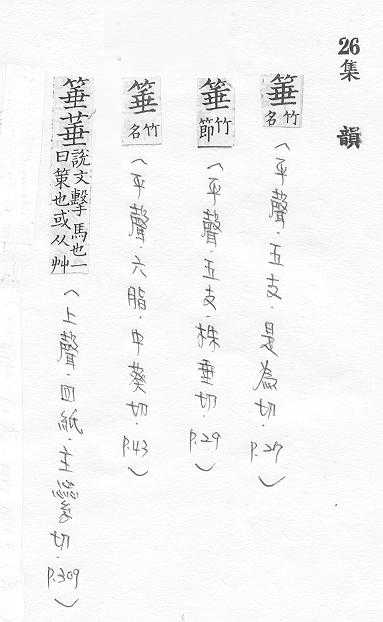 26集 韻
箠竹名(平聲.五支.是為切.P.27)
箠竹節(平聲.五支.株垂切.P.29)
箠竹名(平聲.六脂.中葵切.P.43)
箠菙說文擊馬也一曰策也或从艸(上聲.四紙.主繠切.P.309)